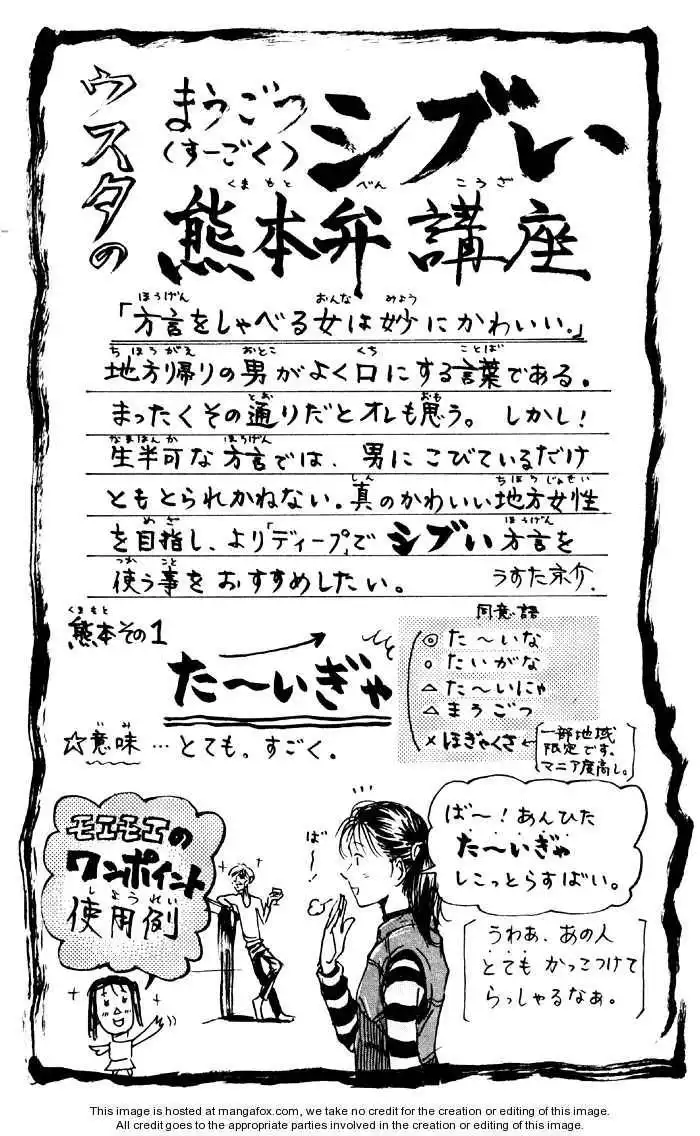 ウスタの
まうごつ
(すーごく)
シブい
くまもと べん こうざ
熊本弁講座
ほうげん おんな みょう
「方言をしゃべる女は妙にかわいい。」
ちほうがえ おとこ くち ことば
地方帰りの男がよく口にする言葉である。
とお おも
まったくその通りだとオレも思う。しかし!
なまはんか ほうげん
生半可な方言では、男にこびているだけ
しん ちほうじょせい
ともとられかねない。真のかわいい地方女性
めざ ほうげん
を目指し、より「ディープ」でシブい方言を
つか こと
使う事をおすすめしたい。 うすた京介.
くまもと
熊本その1
た〜いぎゃ
同意語
◎ た〜いな
○ たいがな
△ た〜いにゃ
△ まうごつ
× ほぎゃくさ
一部地域
限定です。
マニア度高し。
いみ
☆意味…とても。すごく。
モエモエの
ワンポイント
しようれい
使用例
ば〜!
ば〜!あんひた
た〜いぎゃ
しこっとらすばい。
うわあ、あの人
とても かっこつけて
らっしゃるなぁ。
This image is hosted at mangafox.com, we take no credit for the creation or editing of this image.
All credit goes to the appropriate parties involved in the creation or editing of this image.